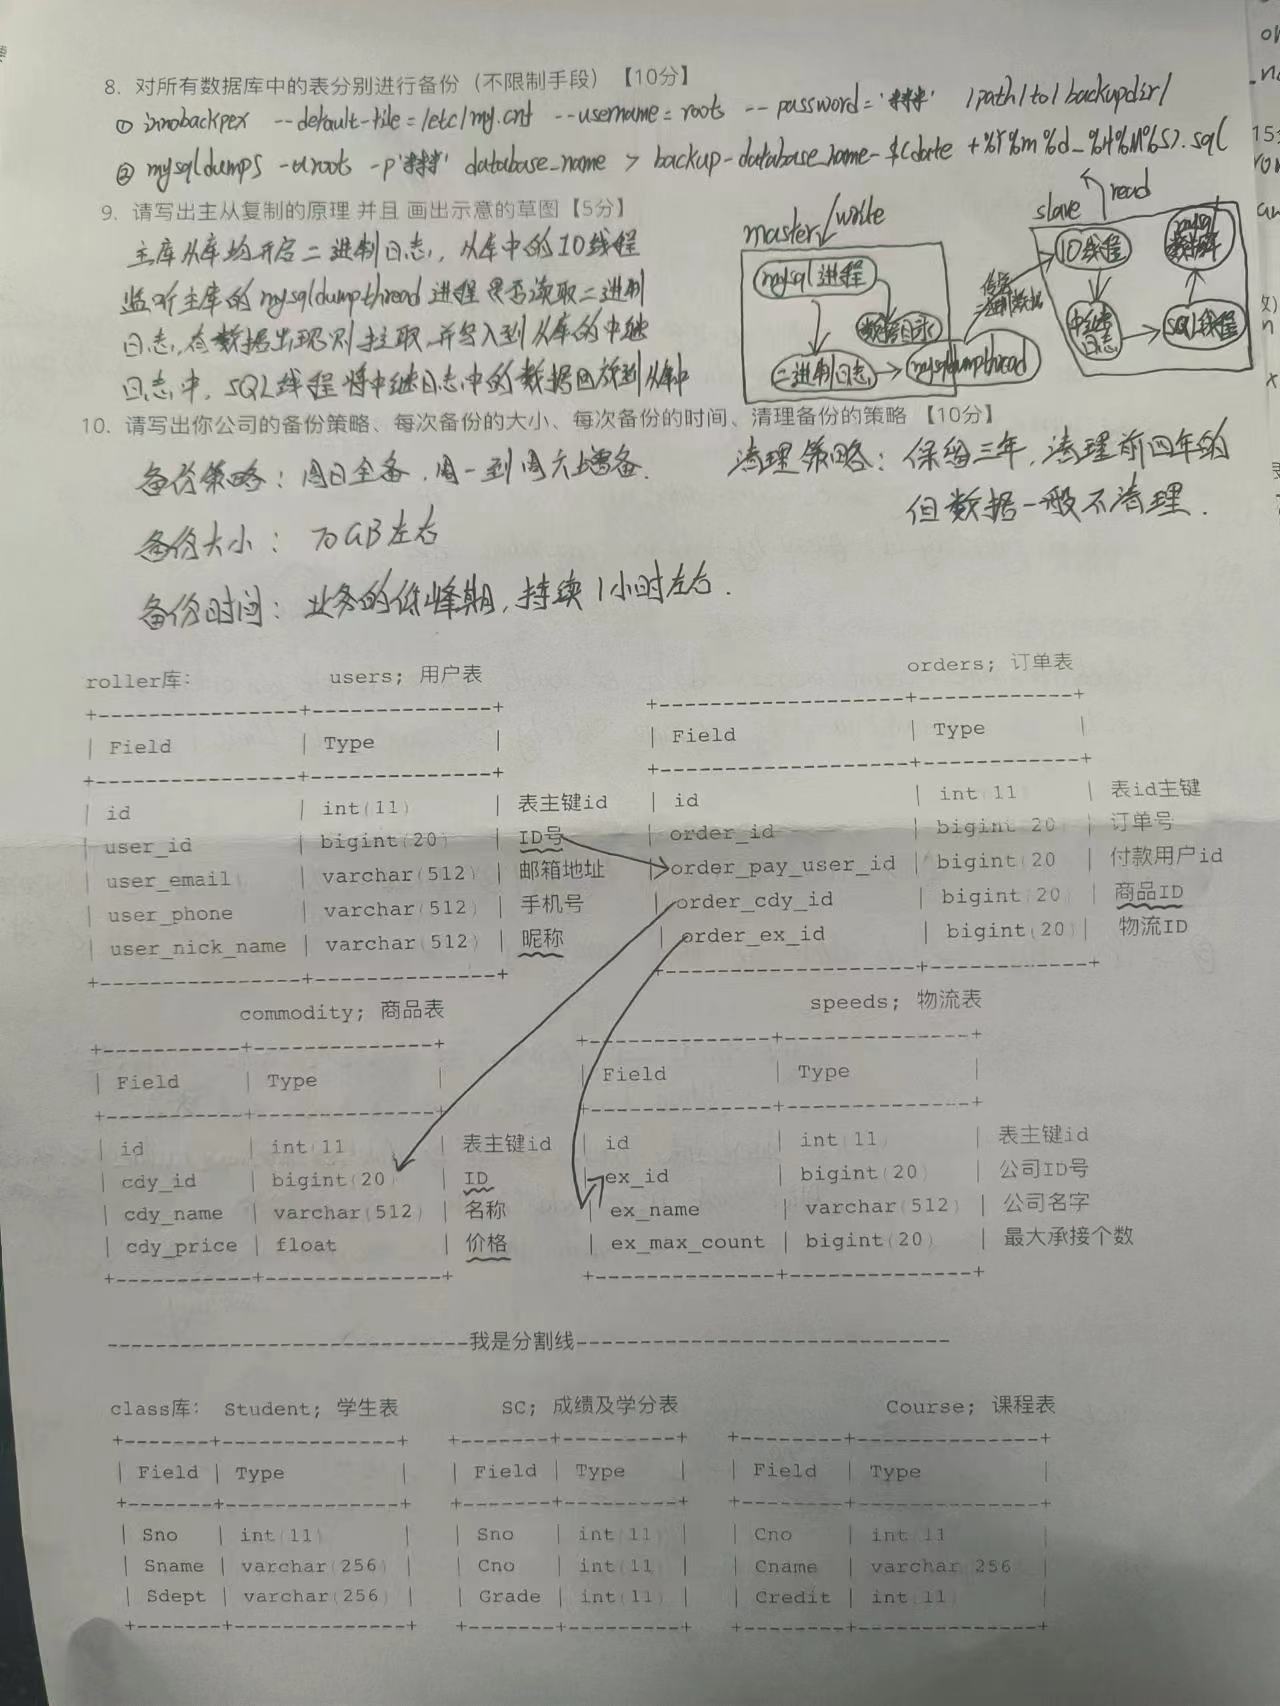 8. 对所有数据库中的表分别进行备份（不限制手段）【10分】
① innobackpex --default-file=/etc/my.cnf --username=roots --password='***' /path/to/backupdir/
② mysqldumps -uroots -p'***' database_name > backup-database_name-$(date +%Y%m%d_%H%M%S).sql
9. 请写出主从复制的原理 并且 画出示意的草图【5分】
主库从库均开启二进制日志，从库中的IO线程
监听主库的mysqldumpthread进程是否读取二进制
日志，有数据出现则拉取，并写入到从库的中继
日志中，SQL线程将中继日志中的数据回放到从库中
master write
mysql进程
数据目录
二进制日志
mysqldumpthread
二进制数据
slave read
IO线程
中继日志
SQL线程
10. 请写出你公司的备份策略、每次备份的大小、每次备份的时间、清理备份的策略【10分】
备份策略：周日全备，周一到周六增备.
清理策略：保留三年，清理前四年的
但数据一般不清理.
备份大小：70GB左右
备份时间：业务的低峰期，持续1小时左右.
roller库： users; 用户表 orders; 订单表
+----------------+--------------+ +-------------------+------------+
| Field | Type | | Field | Type |
+----------------+--------------+ +-------------------+------------+
| id | int(11) | 表主键id | id | int(11 | 表id主键
| user_id | bigint(20) | ID号 | order_id | bigint 20 | 订单号
| user_email | varchar(512) | 邮箱地址 | order_pay_user_id | bigint(20 | 付款用户id
| user_phone | varchar(512) | 手机号 | order_cdy_id | bigint(20) | 商品ID
| user_nick_name | varchar(512) | 昵称 | order_ex_id | bigint(20)| 物流ID
+----------------+--------------+ +-------------------+------------+
commodity; 商品表 speeds; 物流表
+-----------+--------------+ +--------------+--------------+
| Field | Type | | Field | Type |
+-----------+--------------+ +--------------+--------------+
| id | int(11 | 表主键id | id | int(11) | 表主键id
| cdy_id | bigint(20) | ID | ex_id | bigint(20) | 公司ID号
| cdy_name | varchar(512) | 名称 | ex_name | varchar(512) | 公司名字
| cdy_price | float | 价格 | ex_max_count | bigint(20) | 最大承接个数
+-----------+--------------+ +--------------+--------------+
-----------------------------我是分割线------------------------------
class库： Student; 学生表 SC; 成绩及学分表 Course; 课程表
+-------+--------------+ +-------+---------+ +--------+--------------+
| Field | Type | | Field | Type | | Field | Type |
+-------+--------------+ +-------+---------+ +--------+--------------+
| Sno | int(11) | | Sno | int(11) | | Cno | int(11 |
| Sname | varchar(256) | | Cno | int(11) | | Cname | varchar(256 |
| Sdept | varchar(256) | | Grade | int(11) | | Credit | int(11) |
+-------+--------------+ +-------+---------+ +--------+--------------+